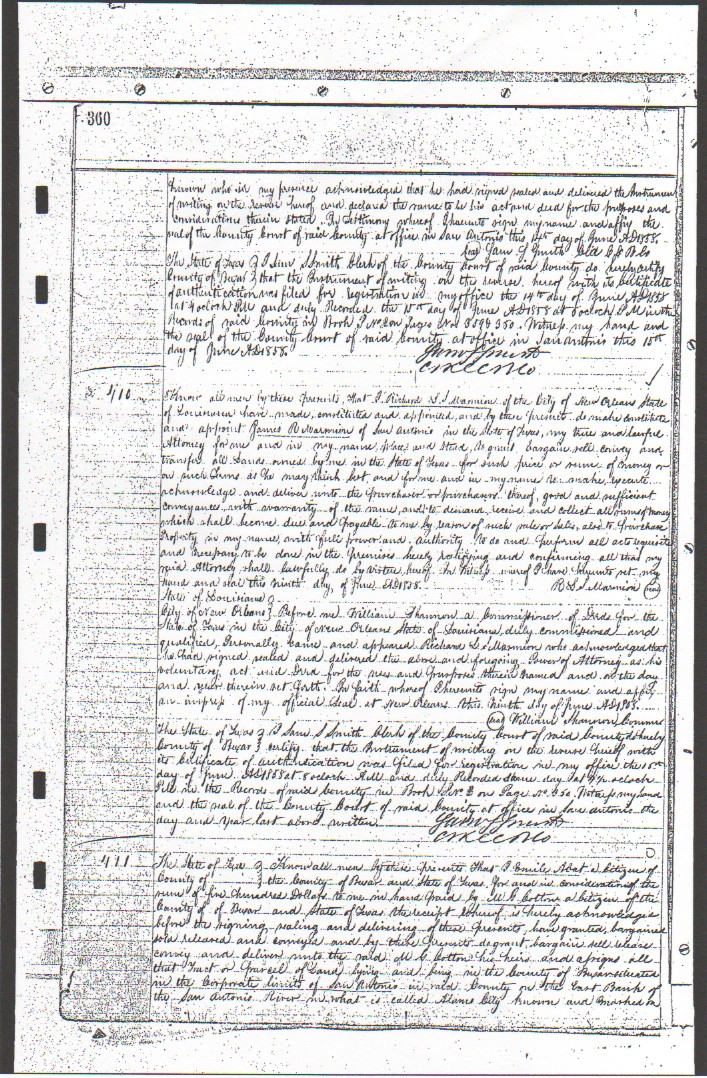 360
known who in my presence acknowledged that he had signed sealed and delivered the Instrument
of writing on the reverse hereof and declared the same to be his act and deed for the purposes and
considerations therein stated. In testimony whereof I hereunto sign my name and affix the
seal of the County Court of said County at office in San Antonio this 14th day of June AD1858.
Sam S Smith Clk C C B Co
The State of Texas } I Sam S Smith Clerk of the County Court of said County do hereby certify
County of Bexar } that the Instrument of writing on the reverse hereof with its Certificate
of authentication was filed for registration in my office the 14th day of June AD1858
at 4 oclock PM and duly Recorded the 15th day of June AD1858 at 5 oclock P M in the
Records of said County in Book P No 2 on Pages Nos 359 & 360. Witness my hand and
the seal of the County Court of said County at office in San Antonio this 15th
day of June AD1858.
Sam S Smith
Clk C C B Co
410
Know all men by these Presents, that I Richard L. S Marmion of the City of New Orleans State
of Louisiana have made, constituted and appointed, and by these presents do make constitute
and appoint James R Marmion of San Antonio in the State of Texas, my true and lawful
Attorney for me and in my name, place and stead, to grant bargain sell convey and
transfer all Lands owned by me in the State of Texas for such price or sums of money or
on such Terms as he may think best and for me and in my name to make, execute
acknowledge and deliver unto the purchaser or purchasers thereof, good and sufficient
conveyances with warranty of the same, and to demand, receive and collect all sums of money
which shall become due and payable to me by reason of such sale or sales, also to purchase
Property in my name, with full power and authority to do and perform all acts requisite
and necessary to be done in the premises hereby ratifying and confirming all that my
said Attorney shall lawfully do by virtue hereof In Witness whereof I have hereunto set my
hand and seal this ninth day of June AD1858. R L S Marmion (seal)
State of Louisiana }
City of New Orleans } Before me William Shannon a Commissioner of Deeds for the
State of Texas in the City of New Orleans State of Louisiana, duly commissioned and
qualified, Personally came and appeared Richard L. S Marmion who acknowledged that
he had signed, sealed and delivered the above and foregoing Power of Attorney as his
voluntary act and Deed for the uses and purposes therein named and on the day
and year therein set forth. In faith whereof I hereunto sign my name and affix
an impress of my official seal at New Orleans this ninth day of June AD1858.
(seal) William Shannon Commr
The State of Texas } I Sam S Smith Clerk of the County Court of said County do hereby
County of Bexar } certify that the Instrument of writing on the reverse hereof with
its Certificate of authentication was filed for registration in my office the 15th
day of June AD1858 at 8 oclock AM and duly Recorded same day at oclock
PM in the Records of said County in Book P No 2 on Page No 360. Witness my hand
and the seal of the County Court of said County at office in San Antonio the
day and year last above written.
Sam S Smith
Clk C C B Co
411
The State of Texas } Know all men by these presents That I Emile Abat a Citizen of
County of } the County of Bexar and State of Texas, for and in consideration of the
sum of five hundred Dollars to me in hand paid by M C Cotton a citizen of the
County of Bexar and State of Texas the receipt whereof is hereby acknowledged
before the signing, sealing and delivering of these Presents, have granted, bargained
sold released and conveyed and by these Presents do grant, bargain sell release
convey and deliver unto the said M C Cotton his heirs and assigns all
that Tract or Parcell of Land lying and being in the County of Bexar situated
in the Corporate limits of San Antonio in said County on the East Bank of
the San Antonio River in what is called Alamo City known and marked in